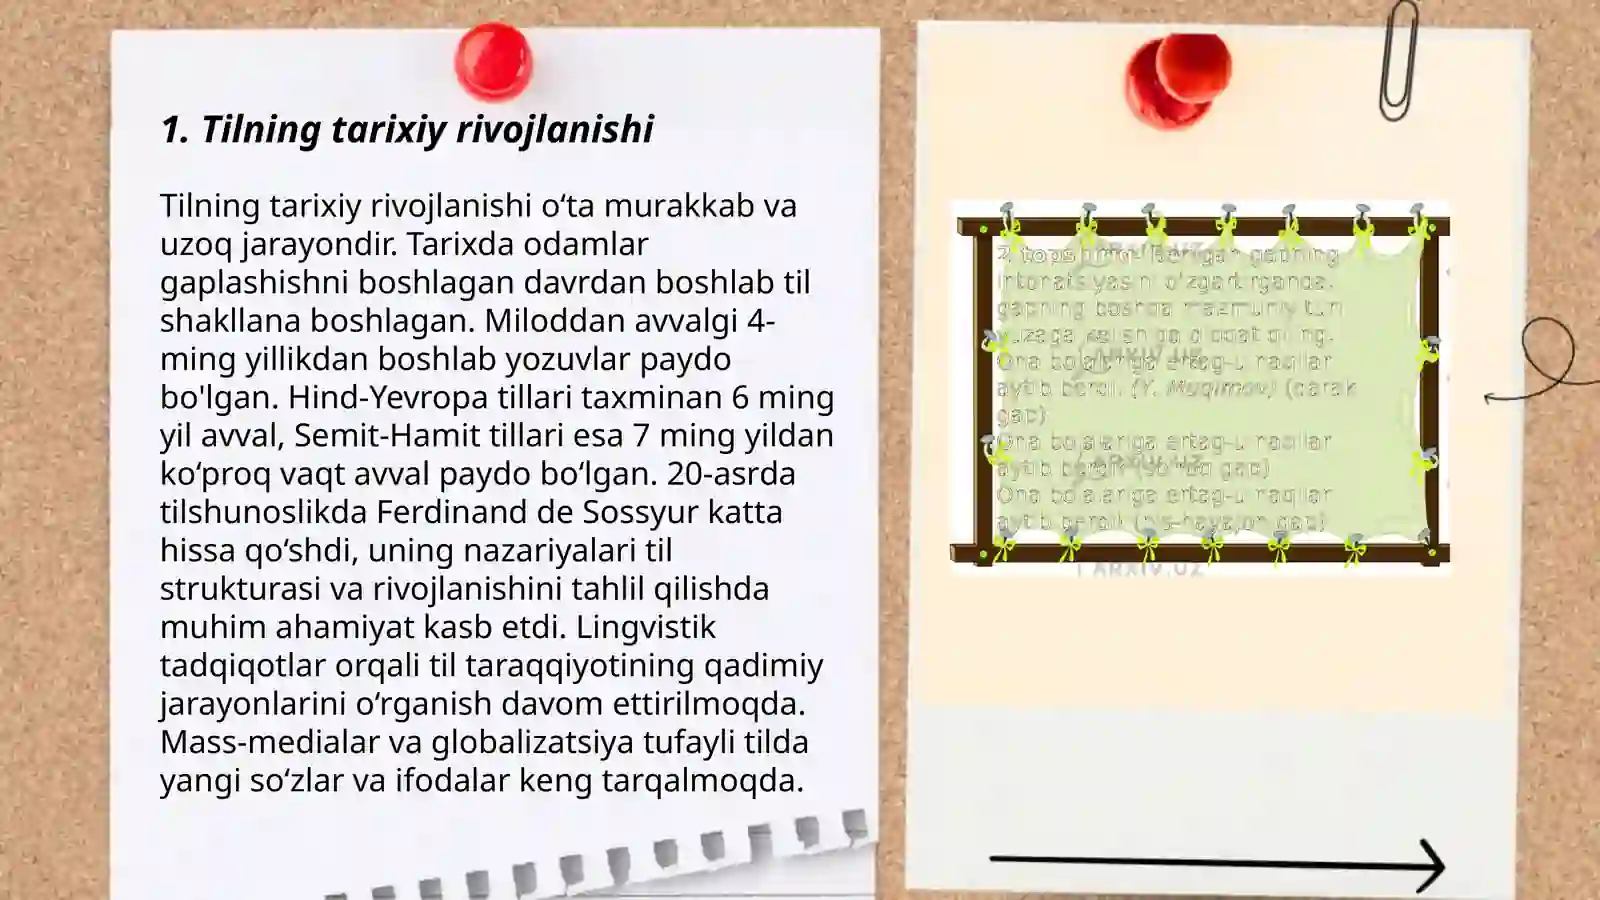 1. Tilning tarixiy rivojlanishi
Tilning tarixiy rivojlanishi o‘ta murakkab va
uzoq jarayondir. Tarixda odamlar
gaplashishni boshlagan davrdan boshlab til
shakllana boshlagan. Miloddan avvalgi 4-
ming yillikdan boshlab yozuvlar paydo
bo'lgan. Hind-Yevropa tillari taxminan 6 ming
yil avval, Semit-Hamit tillari esa 7 ming yildan
ko‘proq vaqt avval paydo bo‘lgan. 20-asrda
tilshunoslikda Ferdinand de Sossyur katta
hissa qo‘shdi, uning nazariyalari til
strukturasi va rivojlanishini tahlil qilishda
muhim ahamiyat kasb etdi. Lingvistik
tadqiqotlar orqali til taraqqiyotining qadimiy
jarayonlarini o‘rganish davom ettirilmoqda.
Mass-medialar va globalizatsiya tufayli tilda
yangi so‘zlar va ifodalar keng tarqalmoqda.
gapning
Ona bolalariga ertag-u naqllar
aytib berdi. (Y. Muqimov) (darak
gap)
Ona bolalariga ertag-u naqllar
aytib gap)
Ona bolalariga ertag-u naqllar
aytib berdi! (his-hayajon gap)
ARXIV.UZ